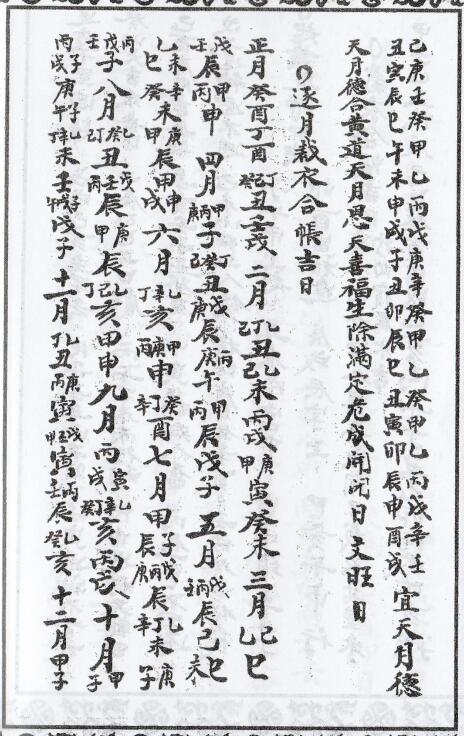 己庚壬癸甲乙丙戊庚辛癸甲乙癸甲乙丙戊辛壬宜天月德
丑寅辰巳午未申戌子丑卯辰巳丑寅卯辰申酉戌
天月德合黄道天月恩天喜福生除滿定危成開閉日又旺日
逐月裁衣合帳吉日
正月癸酉丁酉丁癸丑壬戌二月乙丁己丑己未丙戌庚甲寅癸未三月己乙巳
戊壬辰甲丙申四月甲丙庚子丁癸己丑戊庚辰丙庚午甲丙辰戊子五月戊丙壬辰己巳未
乙巳未癸辛未庚甲辰甲申戌六月乙辛丁亥甲庚丙申癸丁辛酉七月甲子辰戊丙庚辰乙丁辛未庚子
丙戊壬子八月乙癸丁己丑戊壬丙辰庚甲辰乙丁己亥甲申九月丙寅戌乙辛丁癸亥丙戌十月甲子
丙子戊戌庚子午乙丁辛未壬子午戌戊子十一月乙丁丑庚丙寅戊壬甲寅丙壬辰乙癸亥十二月甲子